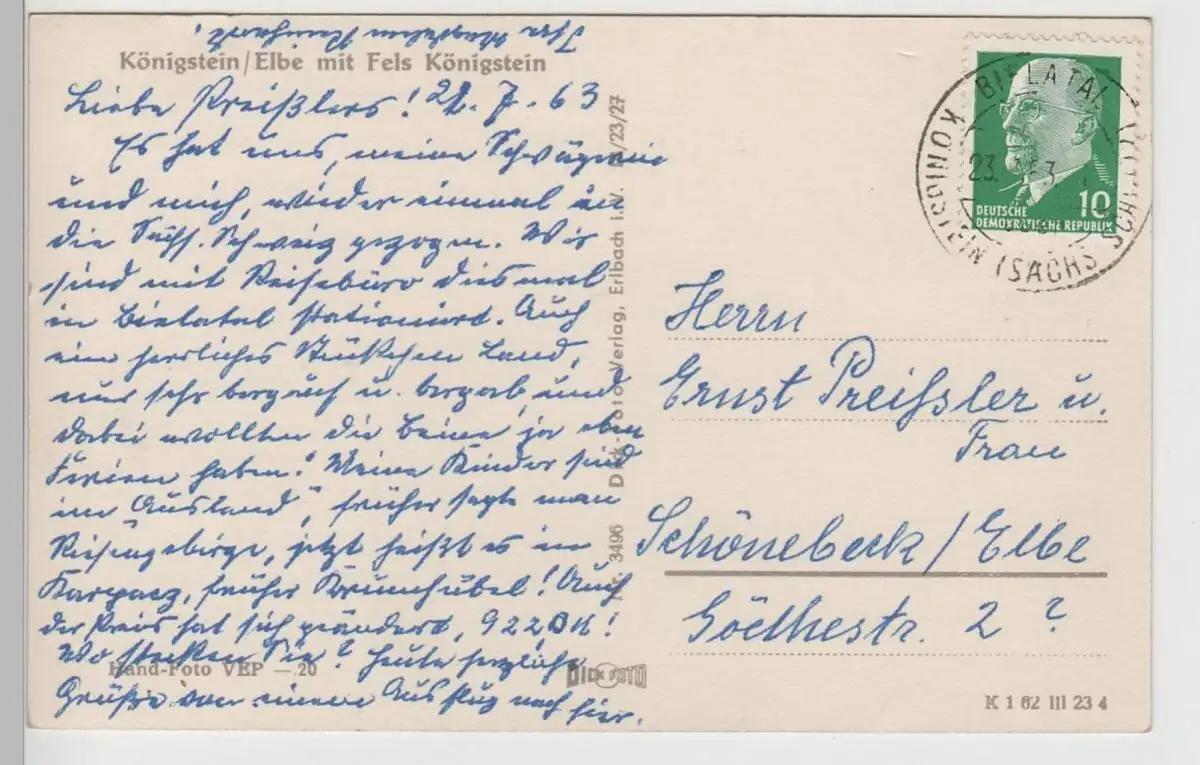 Ihre Magdalene Reinhardt.
Königstein/Elbe mit Fels Königstein
Liebe Preißlers! 22.7.63
Es hat uns, meine Schwägerin
und mich, wieder einmal in
die Sächs. Schweiz gezogen. Wir
sind mit Reisebüro diesmal
in Bielatal stationiert. Auch
ein herrliches Stückchen Land,
nur sehr bergauf u. bergab, und
dabei wollten die Beine ja eben
Ferien haben! Meine Kinder sind
im „Ausland", früher sagte man
Riesengebirge, jetzt heißt es in
Karpacz, früher Krummhübel! Auch
der Preis hat sich geändert, 922 DM!
Wo stecken Sie? Heute herzliche
Grüße von einem Ausflug nach hier.
Hand-Foto VEP —.20
3496 Dick-Foto-Verlag, Erlbach i. V. 23/27
DICK FOTO
BIELATAL
KÖNIGSTEIN (SÄCHS SCHWEIZ)
23.
10
DEUTSCHE
DEMOKRATISCHE REPUBLIK
Herrn
Ernst Preißler u.
Frau
Schönebeck/Elbe
Goethestr. 2 ?
K 1 62 III 23 4